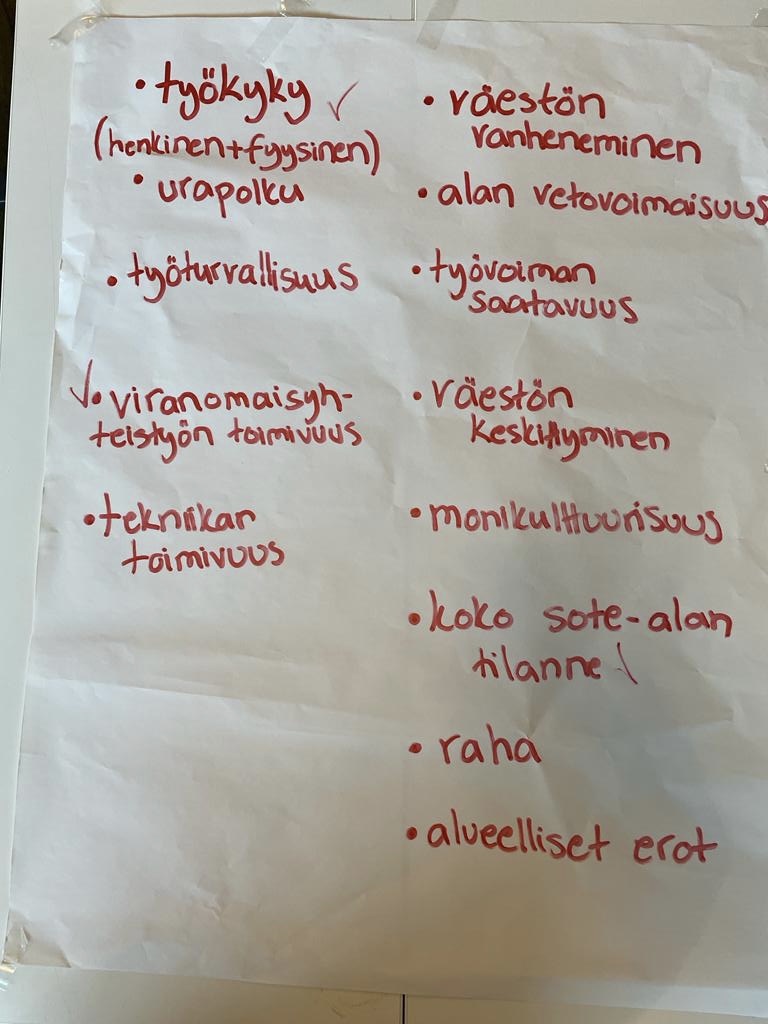 • työkyky ✓
(henkinen+fyysinen)
• urapolku
• työturvallisuus
✓• viranomaisyh-
teistyön toimivuus
• tekniikan
toimivuus
• väestön
vanheneminen
• alan vetovoimaisuus
• työvoiman
saatavuus
• väestön
keskittyminen
• monikulttuurisuus
• koko sote-alan
tilanne ✓
• raha
• alueelliset erot